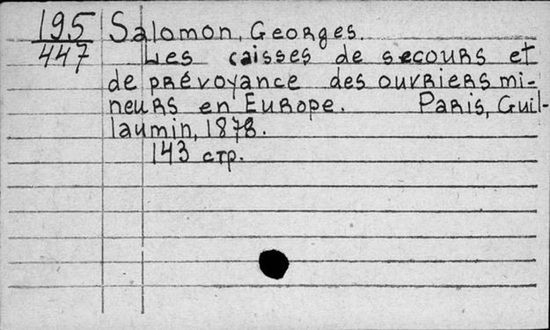 195 Salomon, Georges.
447 Les caisses de secours et
de prévoyance des ouvriers mi-
neurs en Europe. Paris, Guil-
laumin, 1878.
143 стр.